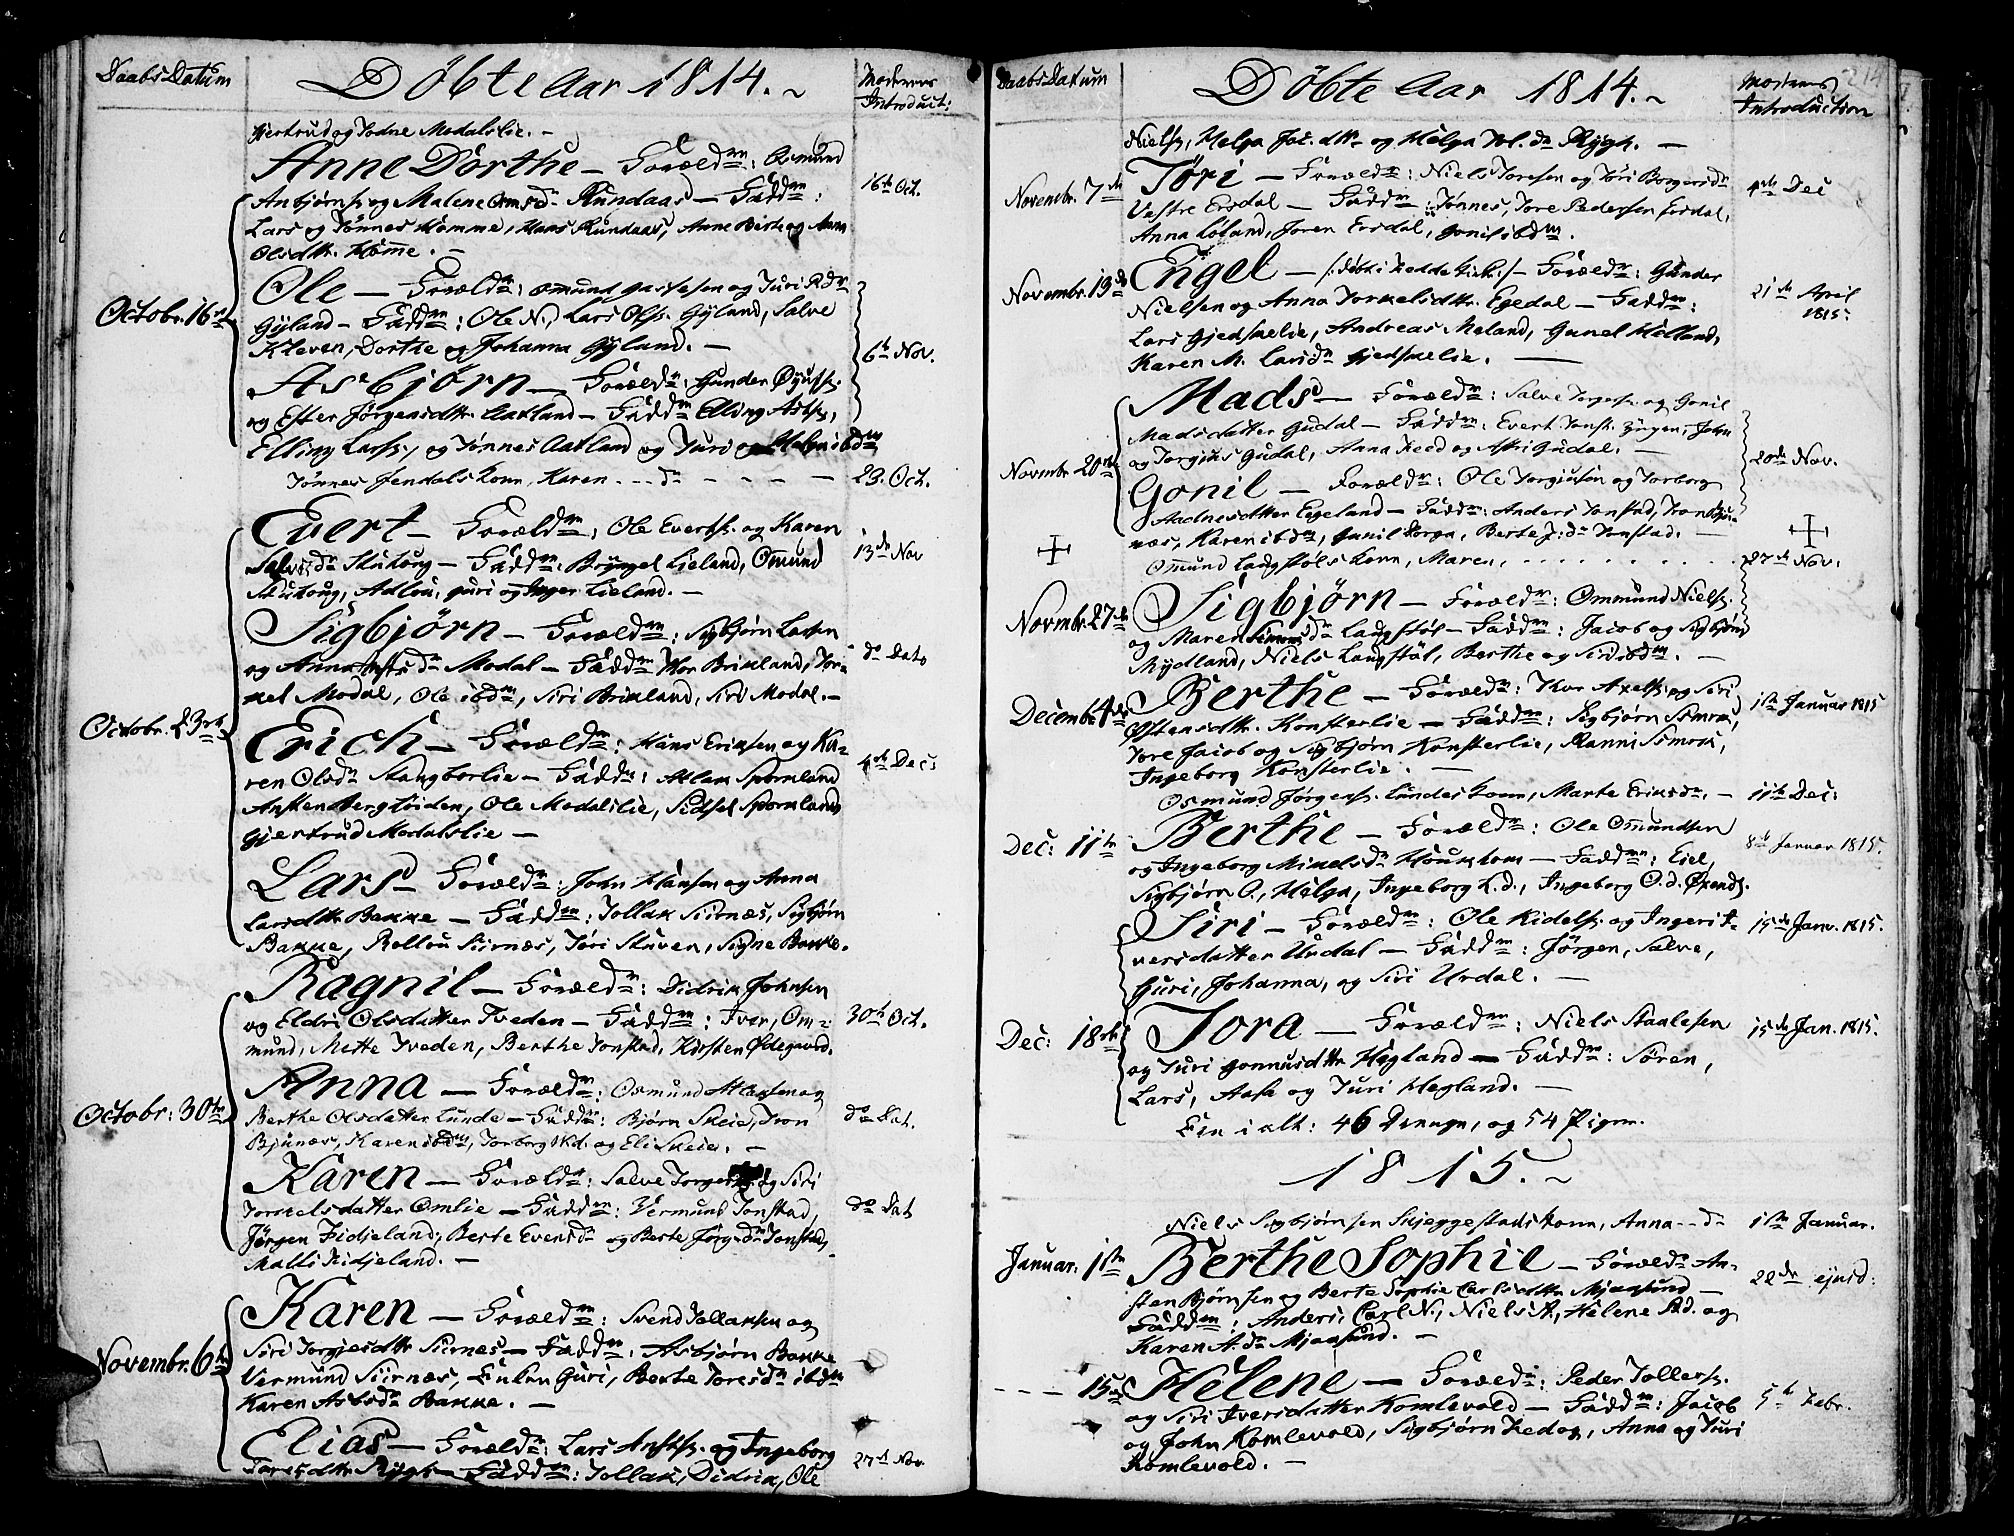 Daabs Datum
Döbte Aar 1814.
Moderens Introduct:
Gjertrud og Todne Modalslie. —
Anne Dorthe — Foræld: Osmund
Anbjørns. og Malene Omsd Rundaas — Fadd:
Lars og Tønnes Homme, Hans Rundaas, Anne Birte og Anna
Olsdtr. Homme. —
16 Oct.
Octobr. 16
Ole — Foræld: Omund Gartesen og Turi
Gyland — Fadd: Ole N., Lars Ols. Gyland, Salve
Kleven, Dorthe og Johanna Gyland. —
6 Nov.
Asbjørn — Foræld: Gunder Øyufs.
og Ester Jörgensdtr. Aatland — Fadd Elling Asbs,
Elling Larss, og Tönnes Aatland og Turi og Helga ibdm
Tönnes Jendals Kone, Karen — d — — — 23. Oct.
Evert — Foræld: Ole Everts. og Karen
Salvesd — Fadd: Bryngel Lieland, Omund
Adlou, Guri og Inger Lieland. —
13 Nov
Sigbjörn — Foræld: Sigbjörn Larsen
og Anna Modal — Fadd Thor Brinland, Tor-
kel Modal, Ole ibdm, Siri Brinland, Siri Modal. —
do Dato
Octobr. 23
Erich — Foræld: Hans Eriksen og Ka-
ren Olsd Stangborlie — Fadd: Atlak Spornland
Ansten Bergløiden, Ole Modalslie, Sidsel Spornland
Gjertrud Modalslie —
4 Dec:
Lars — Foræld: John Hansen og Anna
Larsdtr Bakke — Fadd: Tollak Siirnæs, Sigbjörn
Bakke, Rollou Siirnæs, Töri Stuven, Signe Bakke.
Ragnil — Foræld: Didrik Johnsen
og Eldri Olsdatter Tveden — Fadd: Iver, Om-
mund, Mette Tveden, Berthe Tonstad, Kirsten Ødegaard.
30 Oct.
Octobr: 30
Anna — Foræld: Osmund Atlaksen og
Berthe Olsdatter Lunde — Fadd: Bjørn Skeie, Tron
Bjunæs, Karen ibdm, Torborg og Eli Skeie. —
do Dat.
Karen — Foræld: Salve og Siri
Torkelsdatter Omlie — Fadd: Vermund Tonstad,
Jørgen Fidjeland, Berte Evensd og Berte Jørg.d Tonstad,
Malli Fidjeland. —
do Dat
Novembr. 6
Karen — Foræld: Svend Tollaksen og
Siri Torgjesdtr Siirnes — Fadd: Asbjørn Bakke
Vermund Siirnæs, Guri, Berte Toresd ibdm
Karen Asbsd Bakke. —
Elias — Foræld: Lars Anst. og Ingeborg
Taresdtr Rygh — Fadd: Tollak, Didrik, Ole
27 Nov
Daabs Datum
Döbte Aar 1814.
214
Moderens Introduction
Niels, Helga Jac. dtr. og Helga Tol. d Rygh. —
Novembr. 7
Töri — Foræld: Niels Toresen og Töri Borgersd
Vestre Ersdal — Fadd: Tönnes, Tore Pedersen Ersdal,
Anna Loland, Joren Ersdal, Gonil ibdm.
4 Dec
Novembr. 13
Engel — /: döbt i Fedde Kirk:/ — Foræld: Gunder
Nielsen og Anna Torkelsdtr. Egedal — Fadd:
Lars Gjedsmelie, Andreas Meland, Gunel Helland,
Karen M. Larsd Gjedsmelie. —
21 April
1815:
Mads — Foræld: Salve Torges. og Gonil
Madsdatter Gudal — Fadd: Evert Tonst. John
og Torgius Gudal, Anna Feed og Asri Gudal. —
Novembr 20
20 Nov.
Gonil — Foræld: Ole Torgiusen og Torborg
Aadnesdtter Egeland — Fadd: Anders Tonstad, Tron Bju-
næs, Karen ibdm, Gunil Berte J: d Tonstad. —
Omund Langstöls Kone, Maren, . . . . 27 Nov.
Novmbr 27
Sigbjörn — Foræld: Ommund Niels.
og Maren Simonsd Langstöl — Fadd: Jacob og Sigbjörn
Rydland, Niels Langstöl, Berthe og Siri ibdm. —
Decemb. 4
Berthe — Foræld: Thor Axels. og Siri
Östensdtr. Konsterlie — Fadd: Sigbjörn Simons,
Tore Jacob og Sigbjørn Konsterlie, Ranni Simons,
Ingeborg Konsterlie. —
1 Januar 1815
Osmund Jørgens. Lundes Kone, Marte Eriksd. — 11 Dec:
Dec: 11
Berthe — Foræld: Ole Omundsen
og Ingeborg Mikelsd Houkhom — Fadd: Eiel,
Sigbjörn O., Helga, Ingeborg L.d., Ingeborg O.d. Øxend.
8 Januar 1815.
Siri — Foræld: Ole Kidels. og Ingeri I-
versdatter Urdal — Fadd: Jörgen, Salve,
Guri, Johanna, og Siri Urdal. —
15 Janv. 1815.
Dec: 18
Tora — Foræld: Niels Staalesen
og Turi Gonnusdtr Hegland — Fadd: Sören,
Lars, Aase og Turi Hegland. —
15 Jan. 1815.
Er i alt: 46 Drenge, og 54 Piger.
1815.
Niels Sigbjørnsen Skjeggestads Kone, Anna — d 1 Januar.
Januar: 1
Berthe Sophie — Foræld An-
sten Bjørnsen og Berte Sophie Carlsdtr Mjaasund —
Fadd: Anders, Carl N., Niels A, Helene Sd. og
Karen A. d Mjaasund. —
22 ejusd:
— — — 15
Helene — Foræld: Peder Tollers.
og Siri Iversdatter Komlevold — Fadd: Jacob
og John Komlevold, Sigbjörn Fedog, Anna og Turi
Komlevold. —
5 Febr.